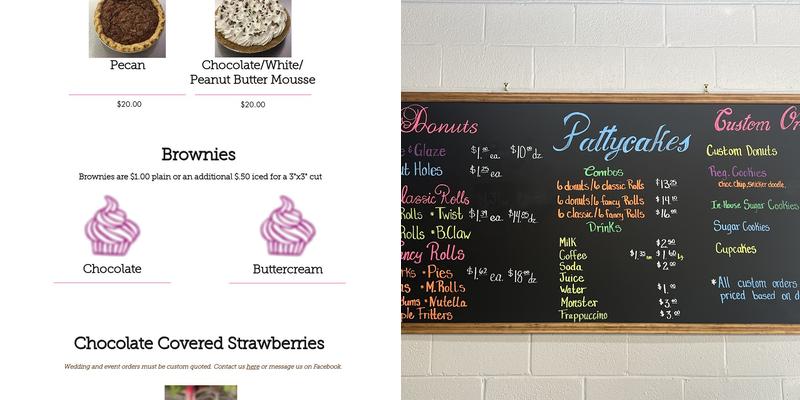 Pecan
Chocolate/White/
Peanut Butter Mousse
$20.00
$20.00
Brownies
Brownies are $1.00 plain or an additional $.50 iced for a 3"x3" cut
Chocolate
Buttercream
Chocolate Covered Strawberries
Wedding and event orders must be custom quoted. Contact us here or message us on Facebook.
Donuts
& Glaze
Holes
Rolls • Twist
Rolls • B.Claw
Rolls
• Pies
• M.Rolls
• Nutella
Fritters
Pattycakes
Combos
6 donuts/6 classic Rolls
6 donuts/6 fancy Rolls
6 classic/6 fancy Rolls
Drinks
Milk
Coffee
Soda
Juice
Water
Monster
Frappuccino
Custom
Custom Donuts
Reg. Cookies
choc.chip, snicker doodle,
In House Sugar Cookies
Sugar Cookies
Cupcakes
*All custom orders
priced based on